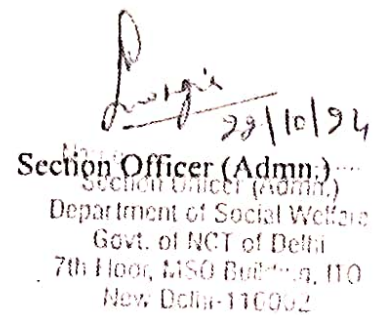 22/10/24
Section Officer (Admn.)
Section Officer (Admn.)
Department of Social Welfare
Govt. of NCT of Delhi
7th Floor, MSO Building, ITO
New Delhi-110002